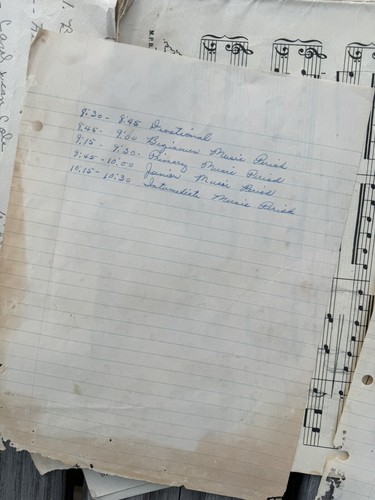 8:30 - 8:45 Devotional
8:45 - 9:00 Beginner Music Period
9:15 - 9:30 - Primary Music Period
9:45 - 10:00 Junior Music Period
10:15 - 10:30 Intermediate Music Period